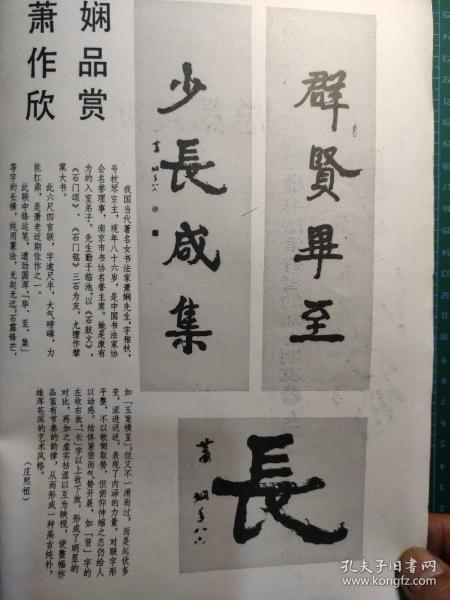 萧娴
作品
欣赏
群贤毕至
少長咸集
萧娴年八六
我国当代著名女书法家萧娴先生，字稚秋，
号枕琴室主，现年八十六岁，是中国书法家协
会名誉理事，南京市书协名誉主席。她是康有
为的入室弟子。先生勤于临池，以《石鼓文》、
《石门颂》、《石门铭》三石为友，尤擅作擘
窠大书。
此六尺四言联，字逾尺半，大气磅礴，力
能扛鼎，是萧老近期佳作之一。
此联中锋运笔，遒劲圆浑，「毕、至、集」
等字的长横，纯用篆法，无起无迄，不露锋芒，
如「玉案横呈」但又不一滑而过，而是起伏多
变，涩进迟送，表现了内涵的力量。对联字形
平整，不以欹侧取势，但俯仰伸缩之态仍给人
以动感。结体紧密而气势开展，如「贤」字的
左收右放，「长」字以上收下放，形成了明显的
对比，再加之虚实枯湿以互为映视，使整幅作
品富有节奏的韵律，从而形成一种高古纯朴，
雄浑苍深的艺术风格。
（庄熙祖）
長
萧娴年八六
孔夫子旧书网
www.kongfz.com